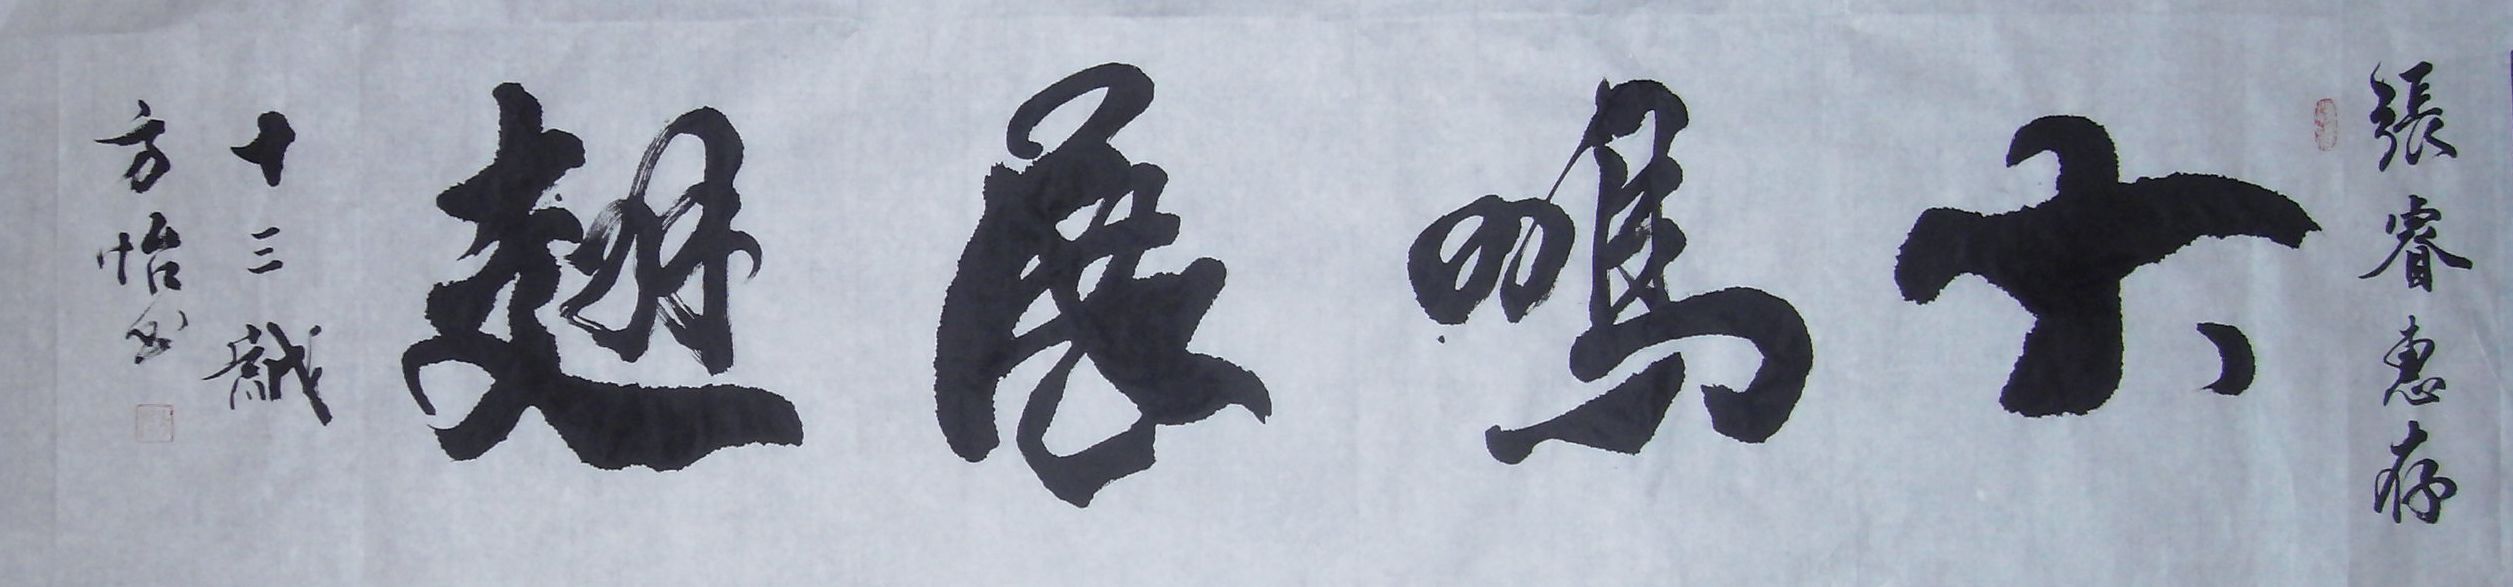 張睿惠存
大鵬展翅
十三歲
方怡书